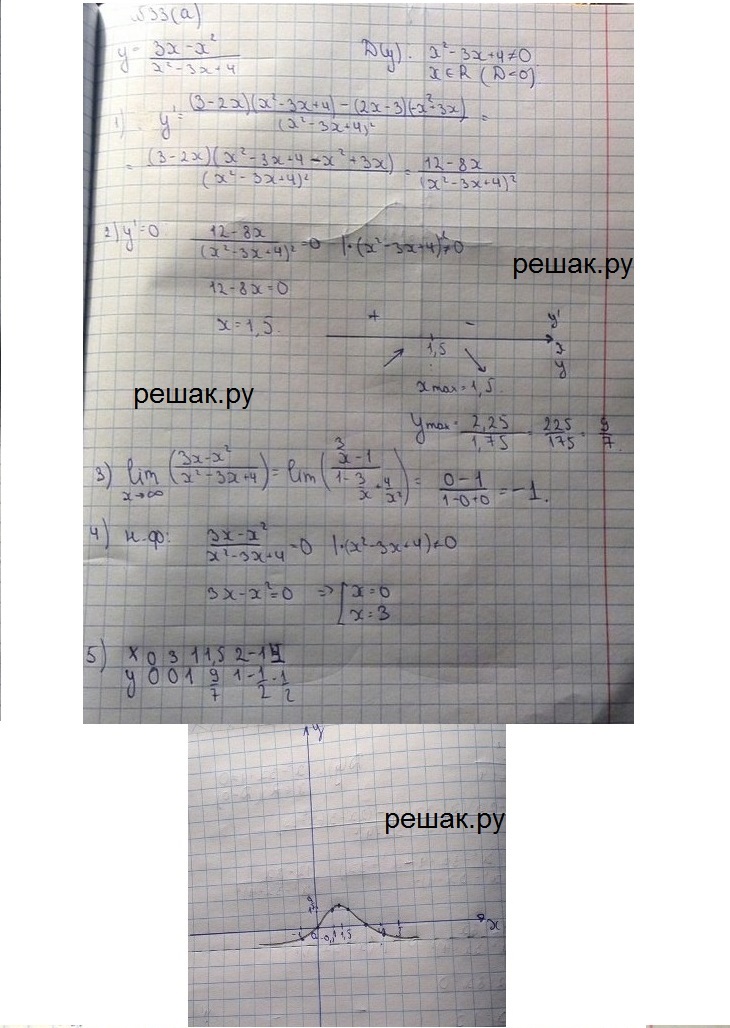 №33(a)
y = (3x-x²)/(x²-3x+4) D(y): x²-3x+4≠0
x∈R (D<0)
1) y' = ((3-2x)(x²-3x+4)-(2x-3)(-x²+3x))/(x²-3x+4)² =
= ((3-2x)(x²-3x+4-x²+3x))/(x²-3x+4)² = (12-8x)/(x²-3x+4)²
2) y'=0 (12-8x)/(x²-3x+4)²=0 |·(x²-3x+4)²≠0
решак.ру
12-8x=0
x=1,5
+ - y'
1,5 x
y
решак.ру
xmax=1,5.
ymax= 2,25/1,75 = 225/175 = 9/7.
3) lim x→∞ ((3x-x²)/(x²-3x+4)) = lim ((3/x-1)/(1-3/x+4/x²)) = (0-1)/(1-0+0) = -1.
4) н.ф: (3x-x²)/(x²-3x+4)=0 |·(x²-3x+4)≠0
3x-x²=0 ⇒ [x=0
x=3
5) x 0 3 1 1,5 2 -1 4
y 0 0 1 9/7 1 -1/2 -1/2
y
решак.ру
x